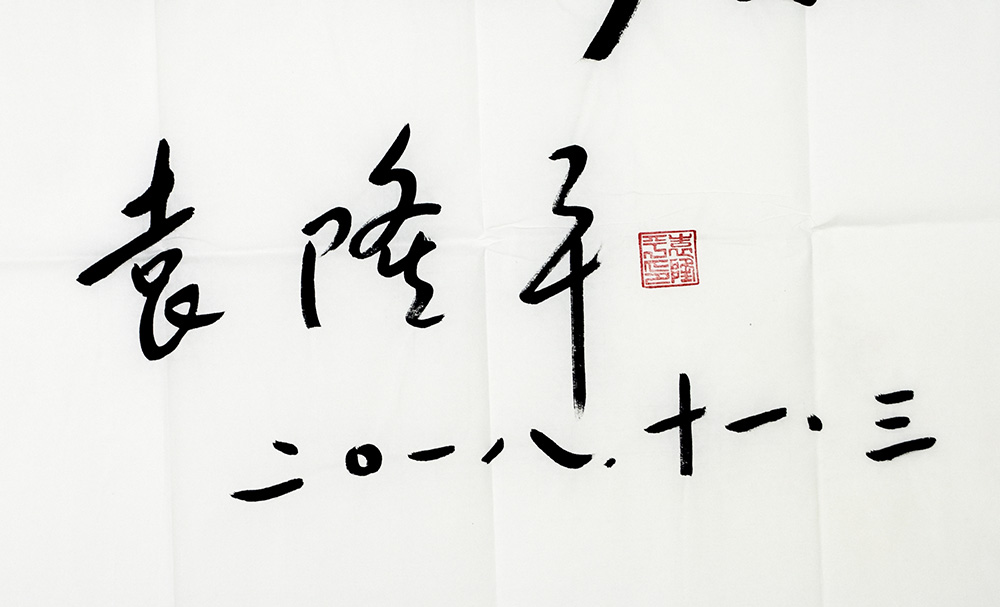 袁隆平
袁隆平印
二〇一八.十一.三